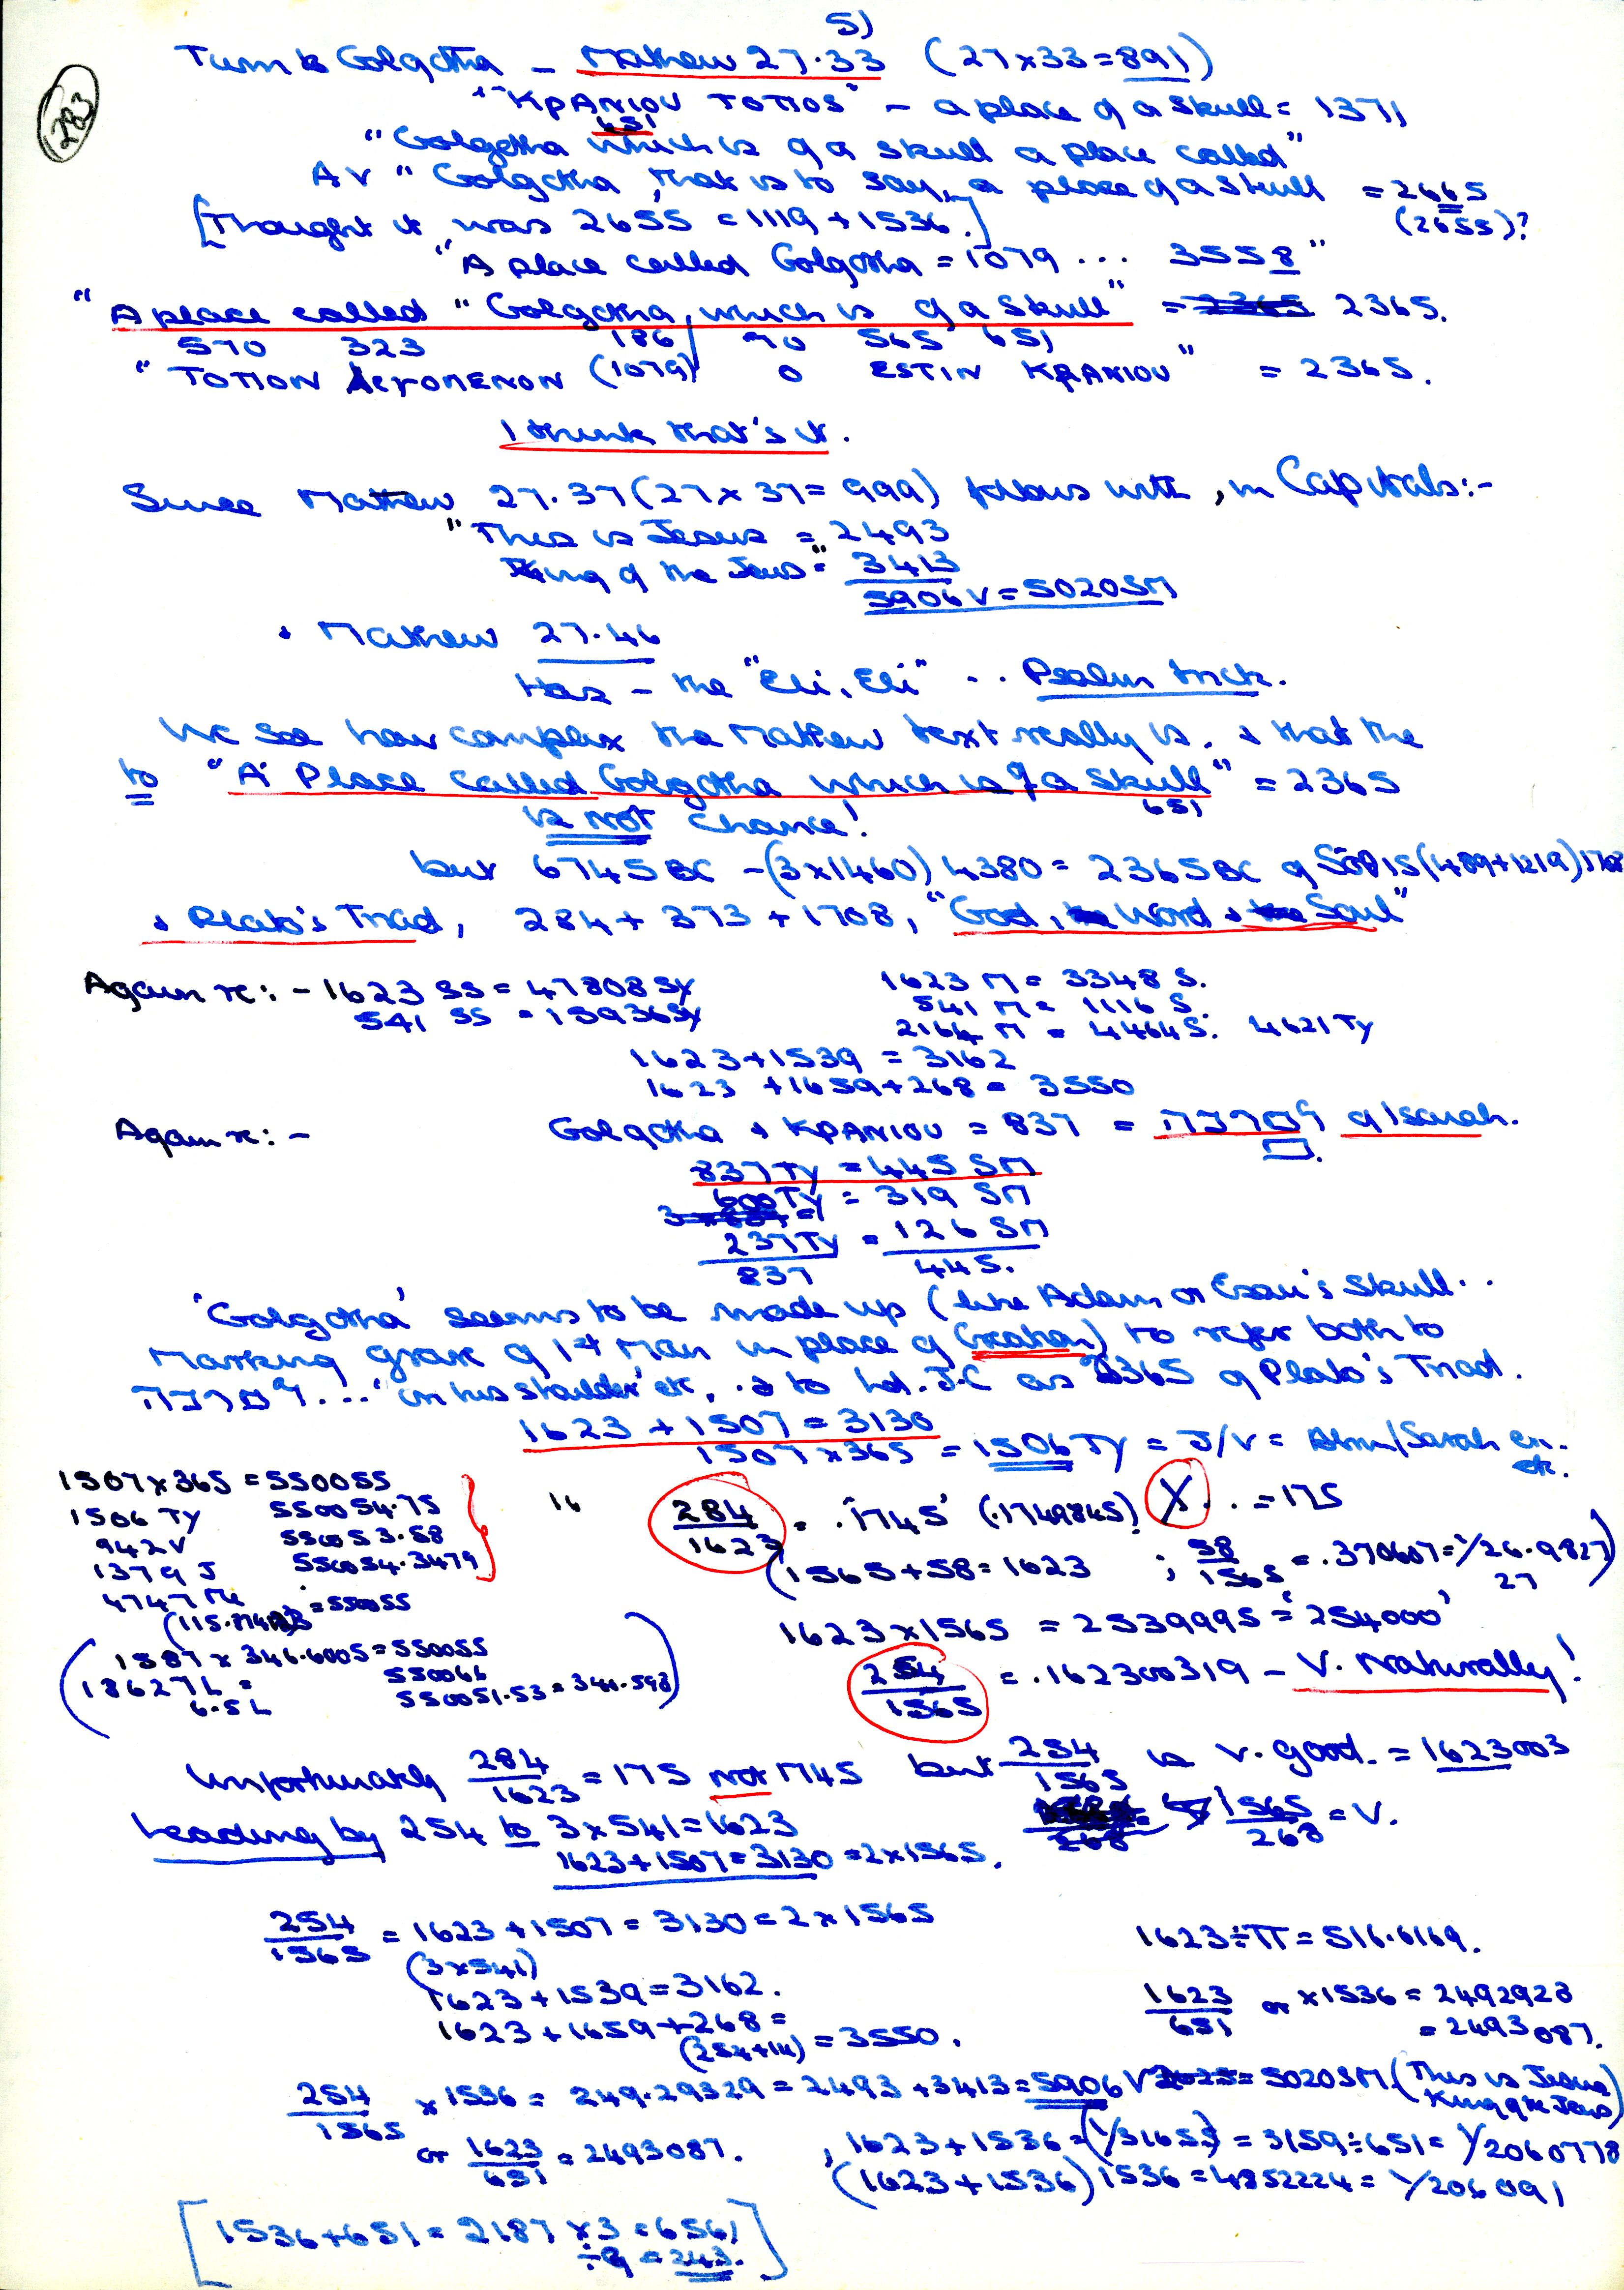 5)
283
Turn to Golgotha – Mathew 27.33 (27×33=891)
"KPANIOU TOΠOS" – a place of a Skull = 1371
651
"Golgotha which is of a skull a place called"
AV "Golgotha, that is to say, a place of a skull = 2665
[Thought it was 2655 = 1119 + 1536.] (2655)?
"A place called Golgotha = 1079 ... 3558"
"A place called "Golgotha, which is of a Skull" = 2365.
570 323 186 70 565 651
"TOΠON ΛEYOMENON (1079) O ESTIN KPANIOU" = 2365.
I think that's it.
Since Mathew 27.37 (27×37=999) follows with, in Capitals:-
"This is Jesus = 2493
King of the Jews" = 3413
5906 V = 5020 SM
+ Mathew 27.46
Has – the "Eli, Eli" .. Psalm trick.
We see how complex the Mathew text really is, & that the
to "A Place called Golgotha which is of a Skull" = 2365
651
is not chance!
but 6745 BC – (3×1460) 4380 = 2365 BC of (489+1219) 1708
& Plato's Triad, 284 + 373 + 1708, "God, the Word & the Soul"
Again re:- 1623 SS = 47808 Sy 1623 M = 3348 S.
541 SS = 15936 Sy 541 M = 1116 S.
2164 M = 4464 S. 4621 Ty
1623+1539 = 3162
1623 +1659+268 = 3550
Again re:- Golgotha & KPANIOU = 837 = of Isaiah.
837 Ty = 445 SM
600 Ty = 319 SM
237 Ty = 126 SM
837 445.
'Golgotha' seems to be made up (like Adam or Esau's Skull..
Marking grave of 1st Man in place of Creation) to refer both to
... 'on his shoulder' etc, & to Ld. J.C as 2365 of Plato's Triad.
1623 + 1507 = 3130
1507×365 = 1506 Ty = J/V = Abm/Sarah en. etc.
1507×365 = 550055
1506 Ty 550054.75
942 V 550053.58
1379 J 550054.3479
4747 Me = 550055
284/1623 = .'1745' (.1749845) Y.. = 175
(1565+58=1623 ; 58/1565 = .370607 = 1/26.9827)
27
(1587 × 346.6005 = 550055
18627 L = 550066
6.5 L 550051.53 = 346.598)
1623×1565 = 2539995 = '254000'
254/1565 = .162300319 – V. Naturally!
Unfortunately 284/1623 = 175 not 1745 but 254/1565 is v. good. = 1623003
Leading by 254 to 3×541=1623
1565/268 = V.
1623+1507=3130 = 2×1565.
254/1565 = 1623+1507 = 3130 = 2×1565
(3×541)
1623+1539=3162.
1623+1659+268 = 3550.
(254+14)
1623÷π = 516.6169.
1623/651 or ×1536 = 2492928
= 2493087.
254/1565 ×1536 = 249.29329 = 2493 + 3413 = 5906 V = 5020 SM. (This is Jesus King of the Jews)
or 1623/651 = 2493087. , 1623+1536 = (1/31655) = 3159÷651 = 1/2060778
(1623+1536) 1536 = 4852224 = 1/206091
[1536+651 = 2187 ×3 = 6561
÷9 = 243.]